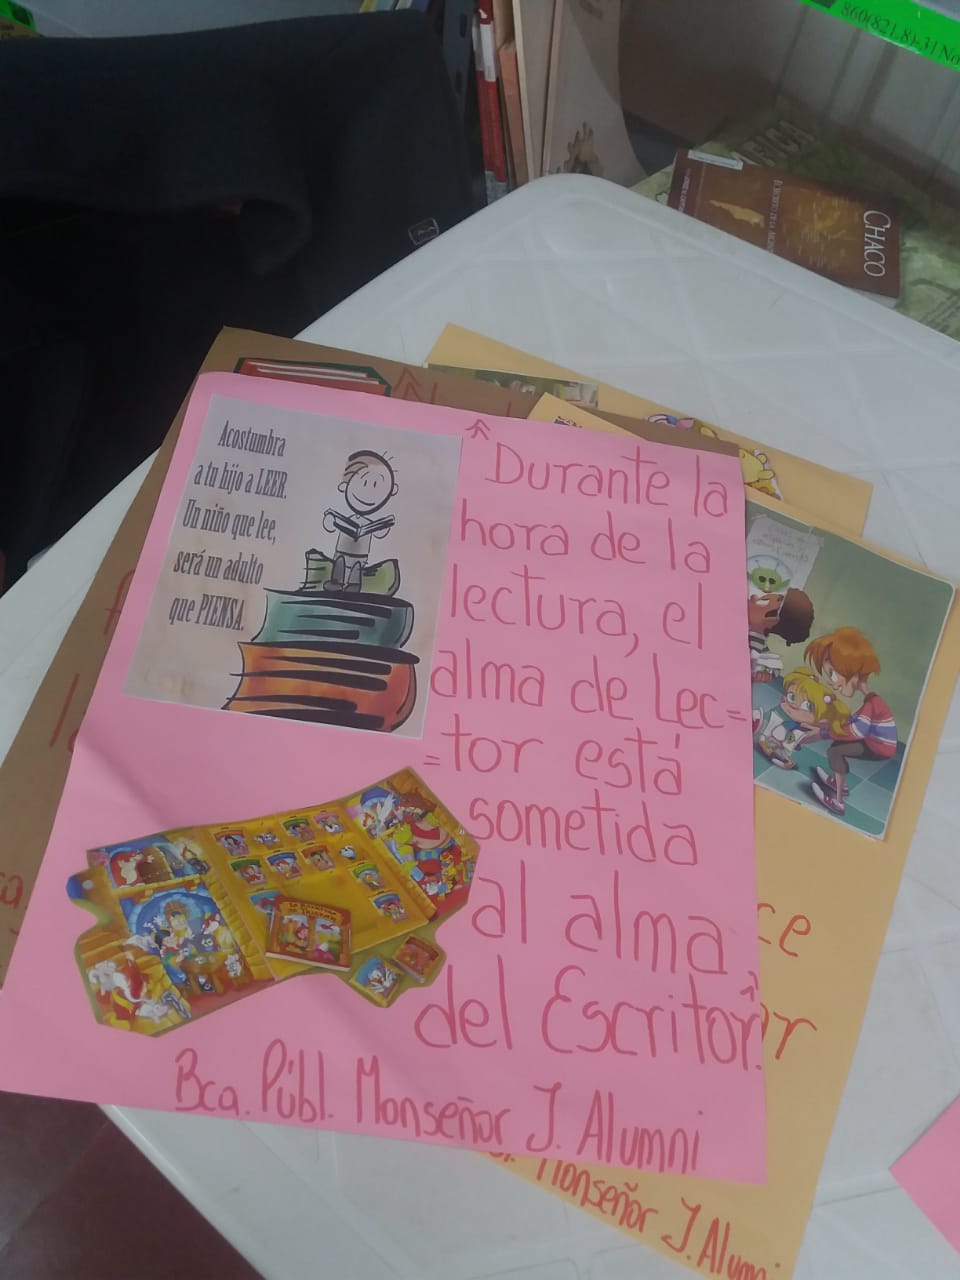 860(821.8)-31 No
CHACO
Acostumbra
a tu hijo a LEER.
Un niño que lee,
será un adulto
que PIENSA.
"Durante la
hora de la
lectura, el
alma de Lec=
=tor está
sometida
al alma
del Escritor".
Bca. Públ. Monseñor J. Alumni
ce
r
Monseñor J. Alumni